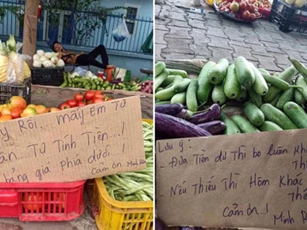 y Rồi.. mấy Em Tự
Tự Tính Tiền..!
bảng giá Phía dưới!
Cảm ơn
Lưu ý:
- Đưa Tiền dư Thì bỏ luôn
Nếu Thiếu Thì Hôm Khác
Cảm ơn..!